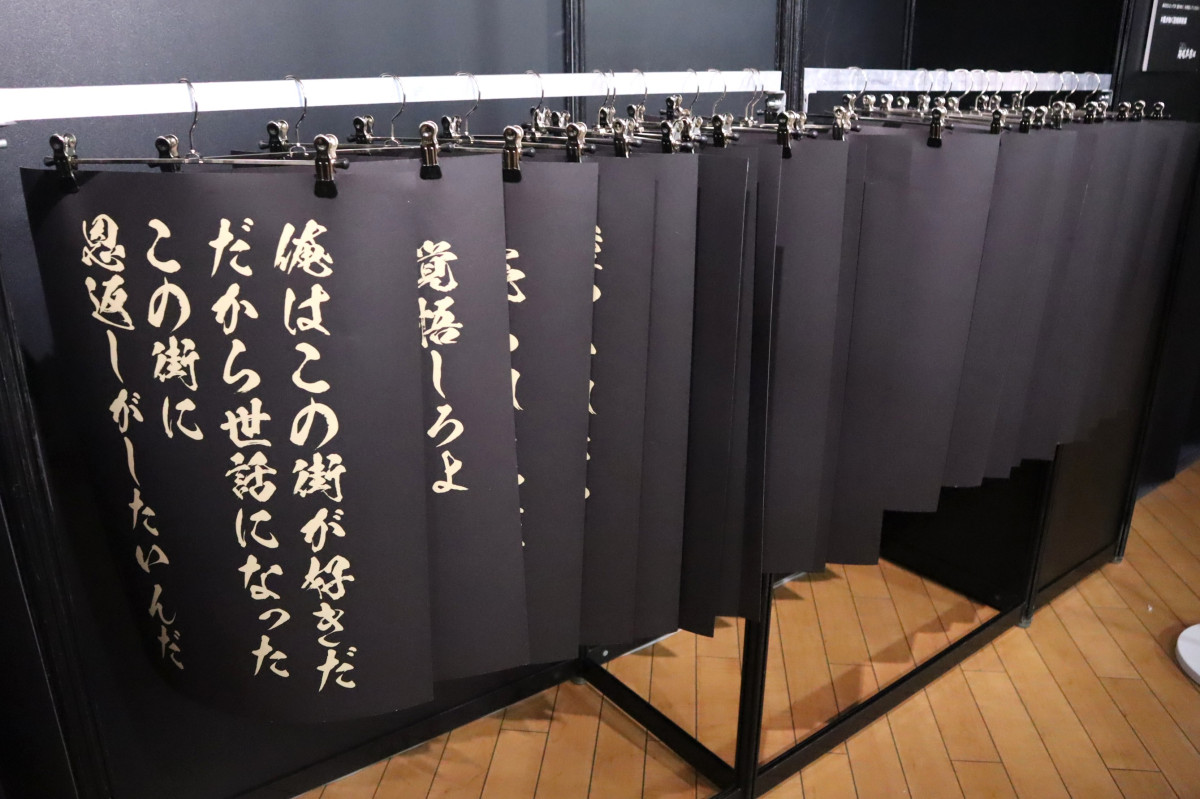 俺はこの街が好きだ
だから世話になった
この街に
恩返しがしたいんだ
覚悟しろよ